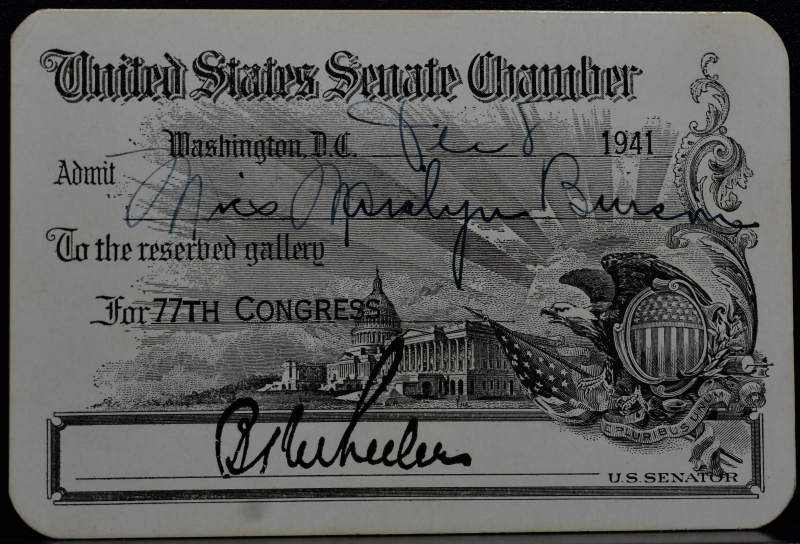 United States Senate Chamber
Washington, D.C. Dec 8 1941
Admit Miss Maralyn
To the reserved gallery
For 77TH CONGRESS
E PLURIBUS UNUM
BKWheeler
U.S. SENATOR